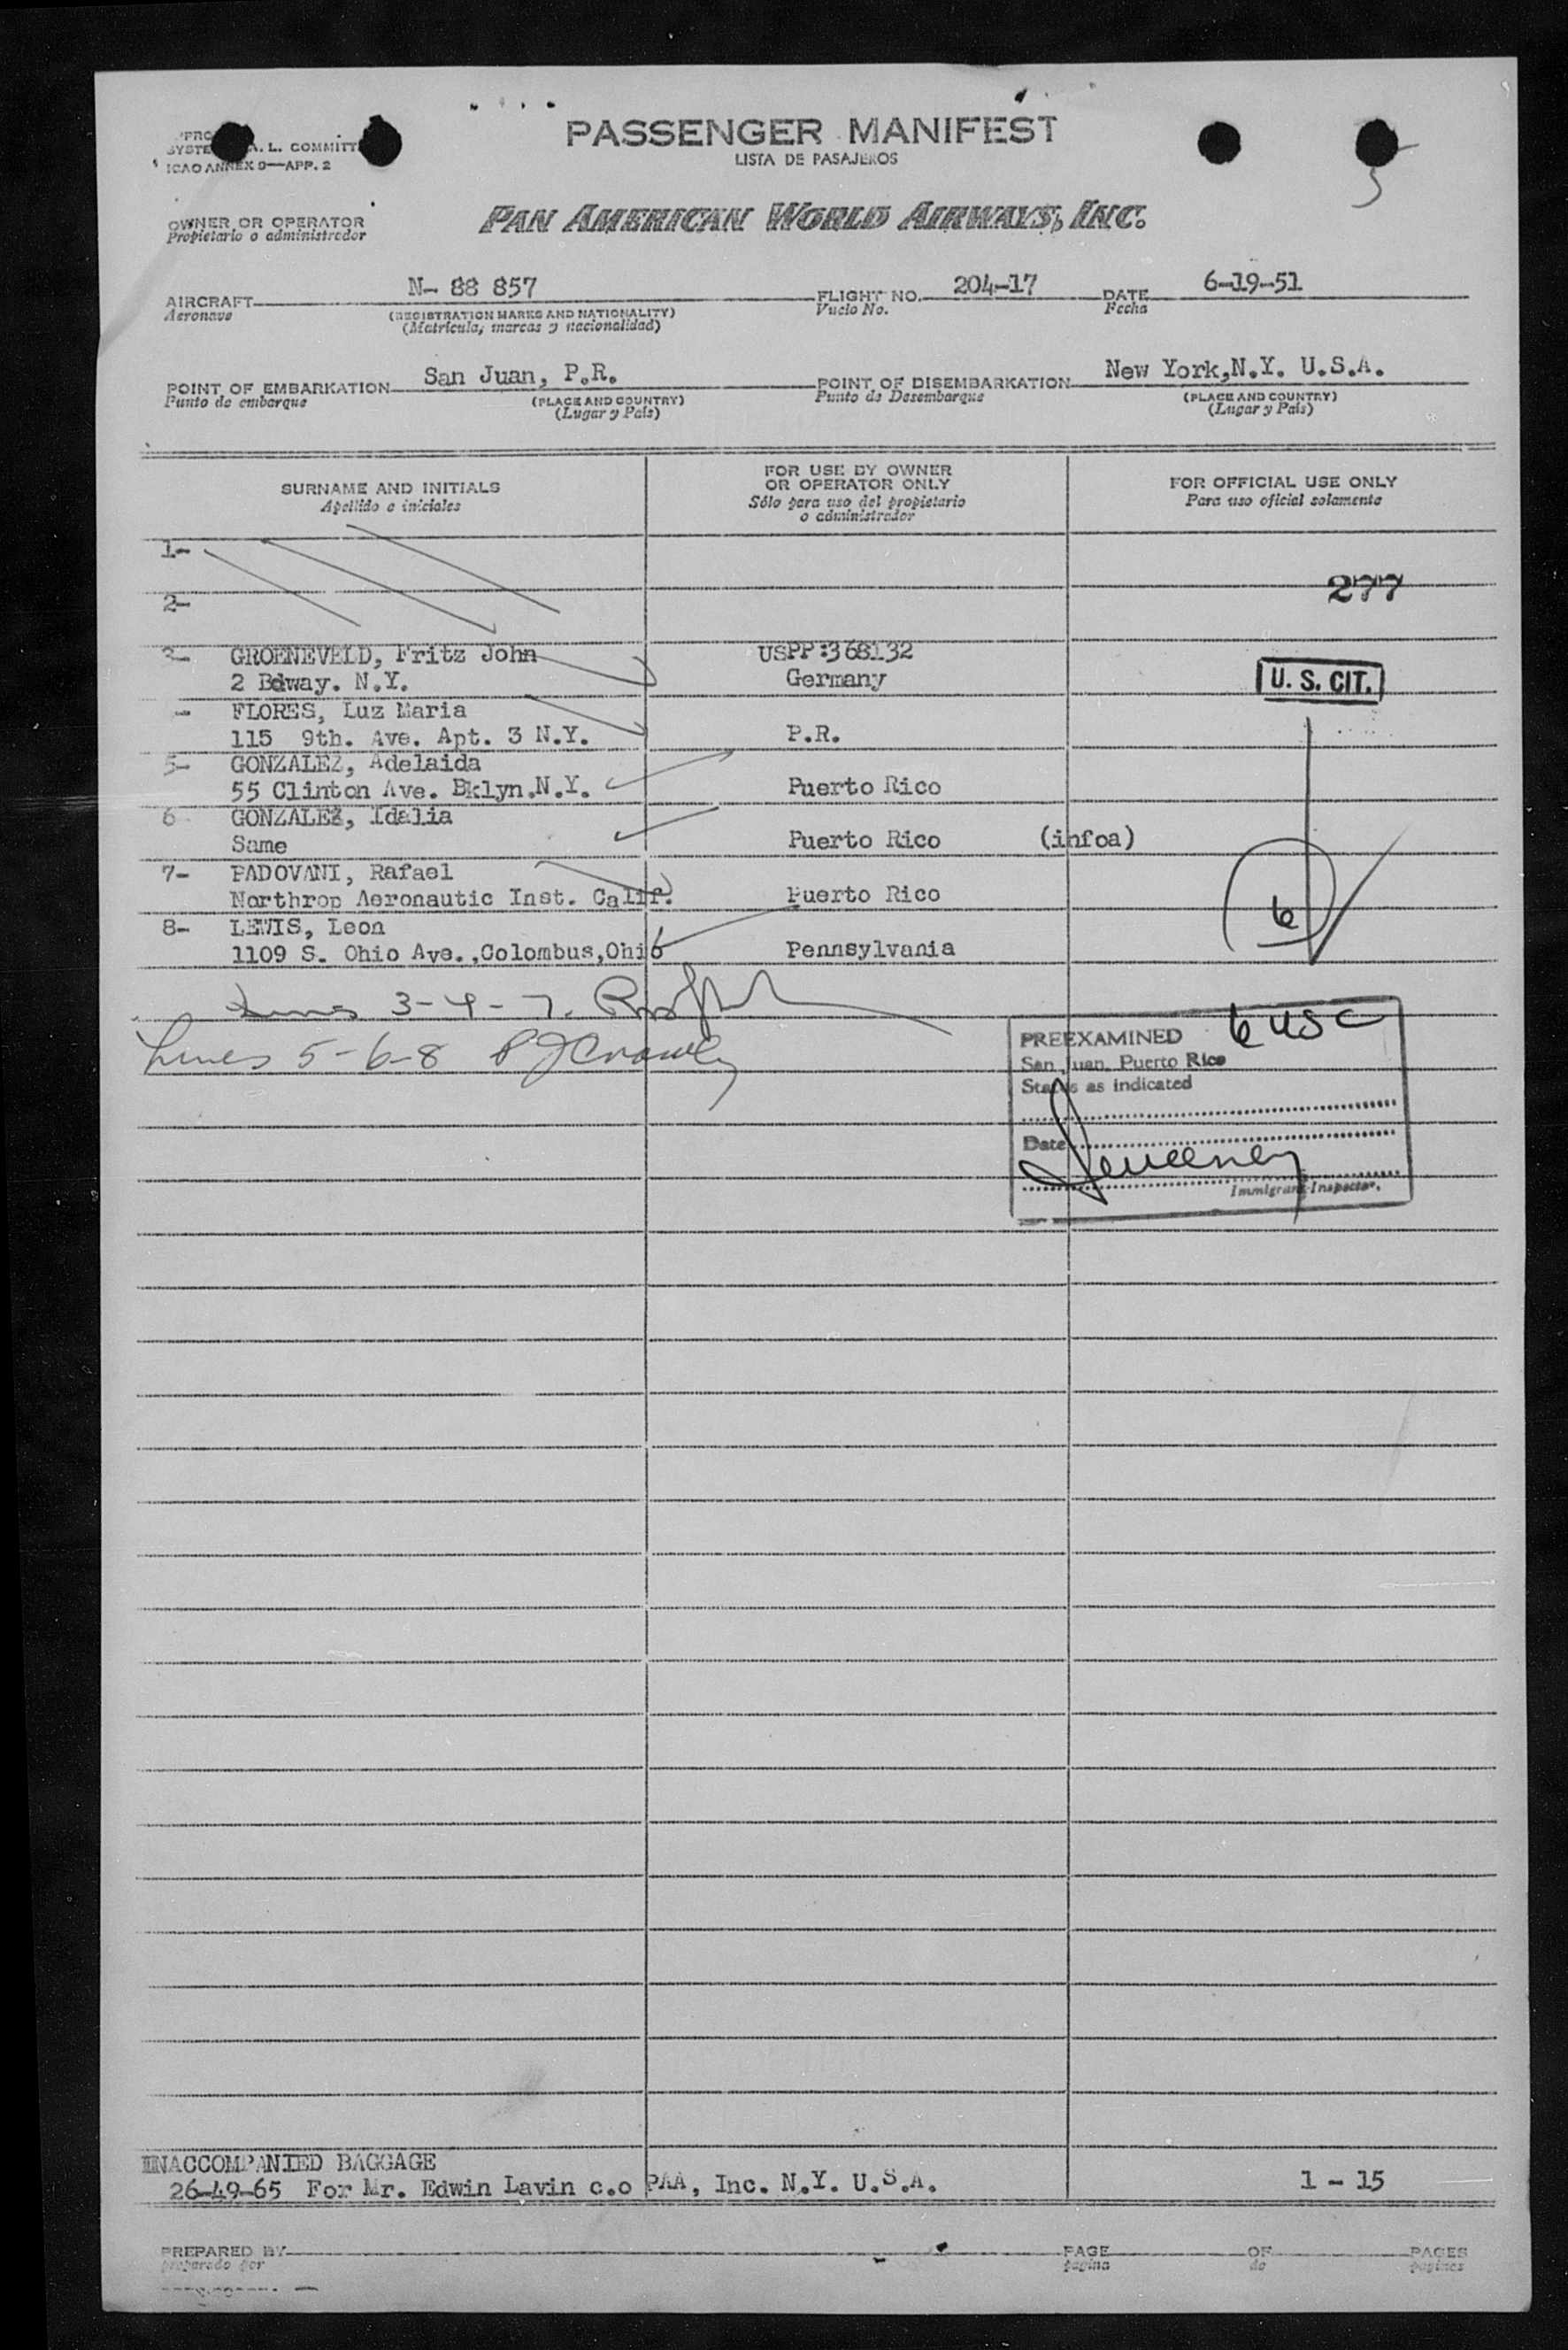 PASSENGER MANIFEST
LISTA DE PASAJEROS
A. L. COMMITT
ICAO ANNEX 9—APP. 2
OWNER OR OPERATOR
Propietario o administrador
PAN AMERICAN WORLD AIRWAYS, INC.
5
AIRCRAFT N- 88 857 FLIGHT NO. 204-17 DATE 6-19-51
Aeronave (REGISTRATION MARKS AND NATIONALITY) Vuelo No. Fecha
(Matrícula, marcas y nacionalidad)
POINT OF EMBARKATION San Juan, P.R. POINT OF DISEMBARKATION New York,N.Y. U.S.A.
Punto de embarque (PLACE AND COUNTRY) Punto de Desembarque (PLACE AND COUNTRY)
(Lugar y País) (Lugar y País)
SURNAME AND INITIALS FOR USE BY OWNER OR OPERATOR ONLY FOR OFFICIAL USE ONLY
Apellido e iniciales Sólo para uso del propietario o administrador Para uso oficial solamente
1-
2- 277
3- GROENEVELD, Fritz John USPP:368132
2 Bdway. N.Y. Germany U. S. CIT.
- FLORES, Luz Maria
115 9th. Ave. Apt. 3 N.Y. P.R.
5- GONZALEZ, Adelaida
55 Clinton Ave. Bklyn.N.Y. Puerto Rico
6 GONZALEZ, Idalia
Same Puerto Rico (infoa)
7- PADOVANI, Rafael
Northrop Aeronautic Inst. Calif. Puerto Rico
6
8- LEWIS, Leon
1109 S. Ohio Ave.,Colombus,Ohio Pennsylvania
Lines 3-4-7.
Lines 5-6-8 P J Crowley
PREEXAMINED 6 USC
San Juan, Puerto Rico
Status as indicated
Date
Sweeney
Immigrant Inspector.
UNACCOMPANIED BAGGAGE
26-49-65 For Mr. Edwin Lavin c.o PAA, Inc. N.Y. U.S.A. 1 - 15
PREPARED BY PAGE OF PAGES
preparado por página de páginas